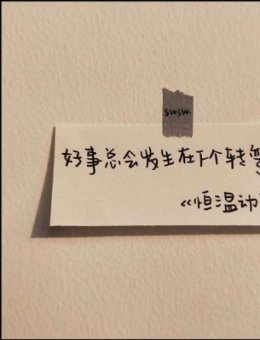 suusuu.
好事总会发生在下个转弯
《恒温动